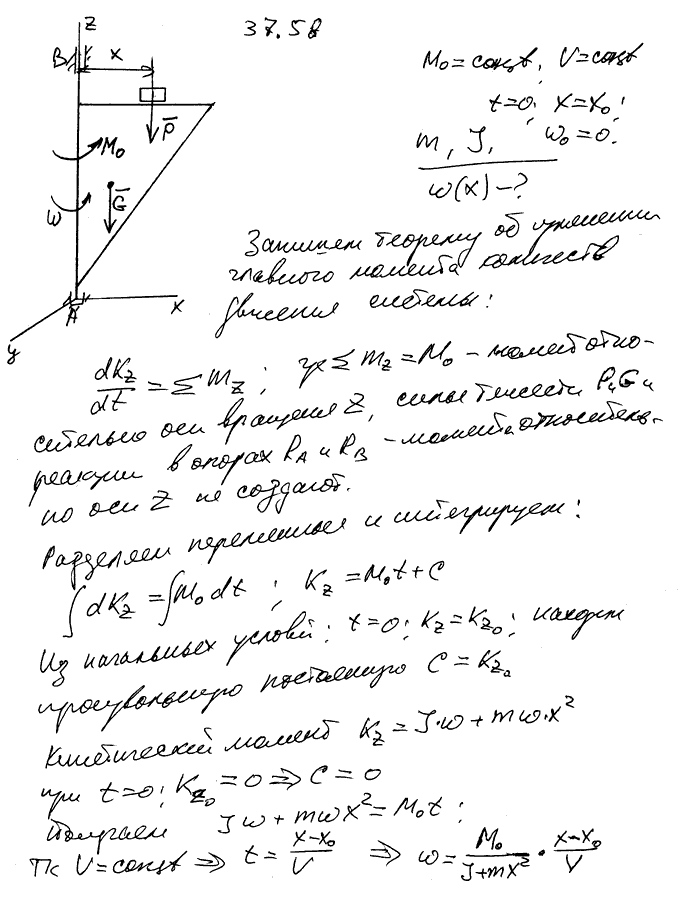 37.58
z
B
x
M₀ = const, V = const
t=0; x=x₀;
ω₀=0.
m, J,
ω(x) - ?
P̄
M₀
ω
Ḡ
A
x
y
Запишем теорему об изменении
главного момента количеств
движения системы:
dK_z/dt = Σ m_z ; где Σ m_z = M₀ - момент отно-
сительно оси вращения Z, силы тяжести P и G и
реакции в опорах R_A и R_B - момента относитель-
но оси Z не создают.
Разделяем переменные и интегрируем:
∫dK_z = ∫M₀dt ; K_z = M₀t + C
Из начальных условий: t=0; K_z = K_z₀; находим
произвольную постоянную C = K_z₀
Кинетический момент K_z = J·ω + mω·x²
при t=0; K_z₀ = 0 ⇒ C = 0
Получаем Jω + mωx² = M₀t ;
Тк V = const ⇒ t = (x-x₀)/V ⇒ ω = M₀/(J+mx²) · (x-x₀)/V